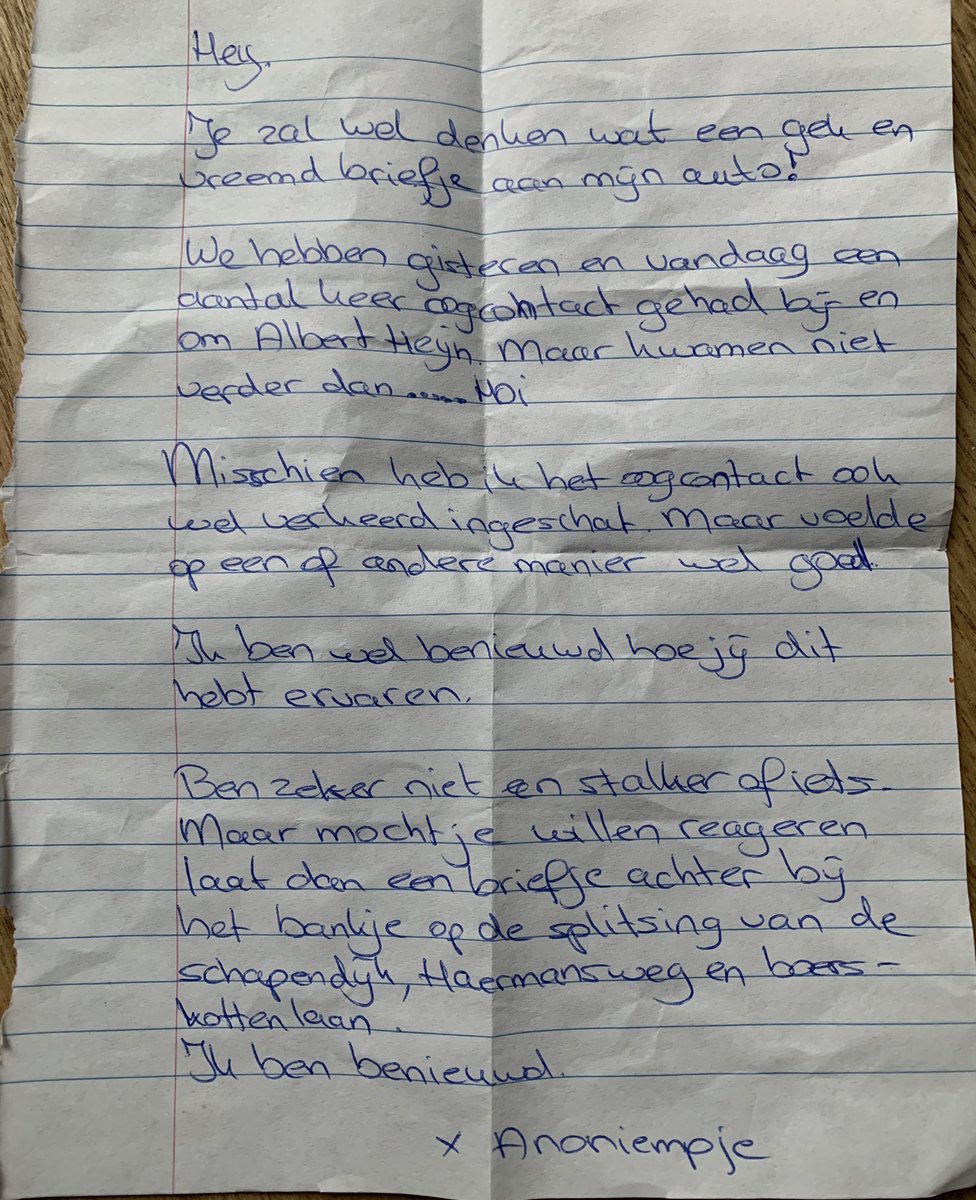 Hey,
Je zal wel denken wat een gek en
vreemd briefje aan mijn auto!
We hebben gisteren en vandaag een
aantal keer oogcontact gehad bij en
om Albert Heijn. Maar kwamen niet
verder dan ...... Hoi
Misschien heb ik het oogcontact ook
wel verkeerd ingeschat. Maar voelde
op een of andere manier wel goed.
Ik ben wel benieuwd hoe jij dit
hebt ervaren.
Ben zeker niet en stalker of iets.
Maar mocht je willen reageren
laat dan een briefje achter bij
het bankje op de splitsing van de
schapendijk, Haermansweg en boers-
kottenlaan.
Ik ben benieuwd.
x Anoniempje